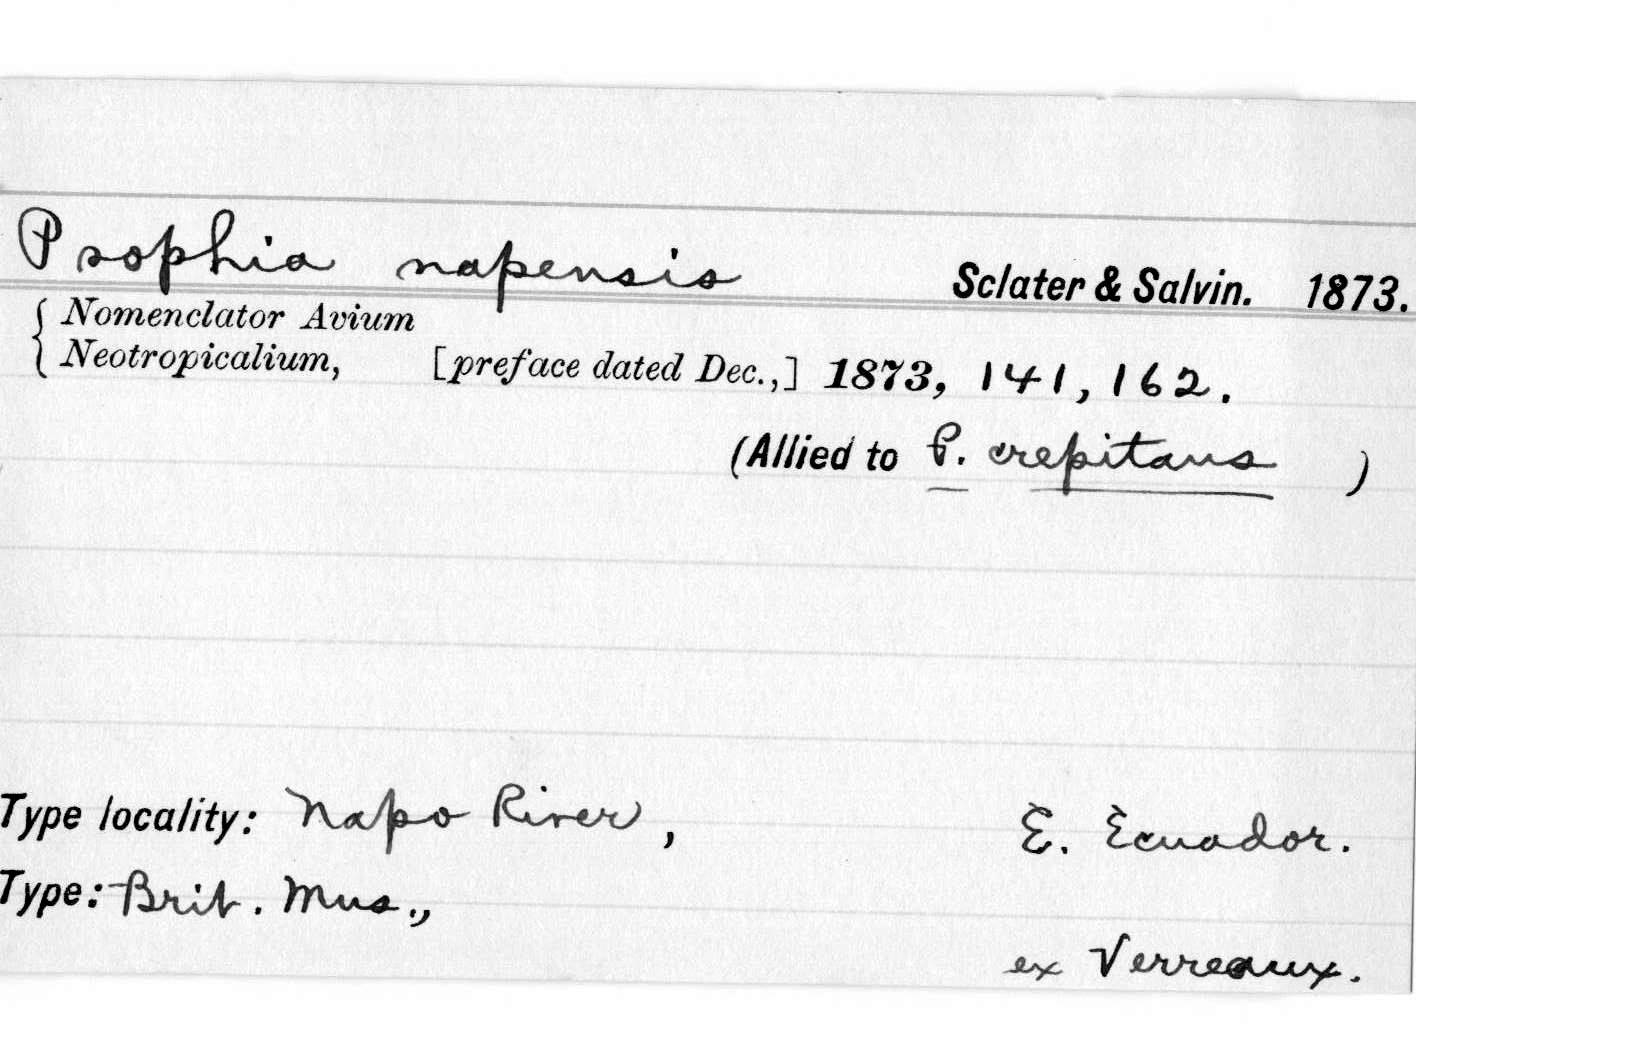 Psophia napensis Sclater & Salvin. 1873.
Nomenclator Avium
Neotropicalium, [preface dated Dec.,] 1873, 141, 162.
(Allied to P. crepitans )
Type locality: Napo River, E. Ecuador.
Type: Brit. Mus.,
ex Verreaux.